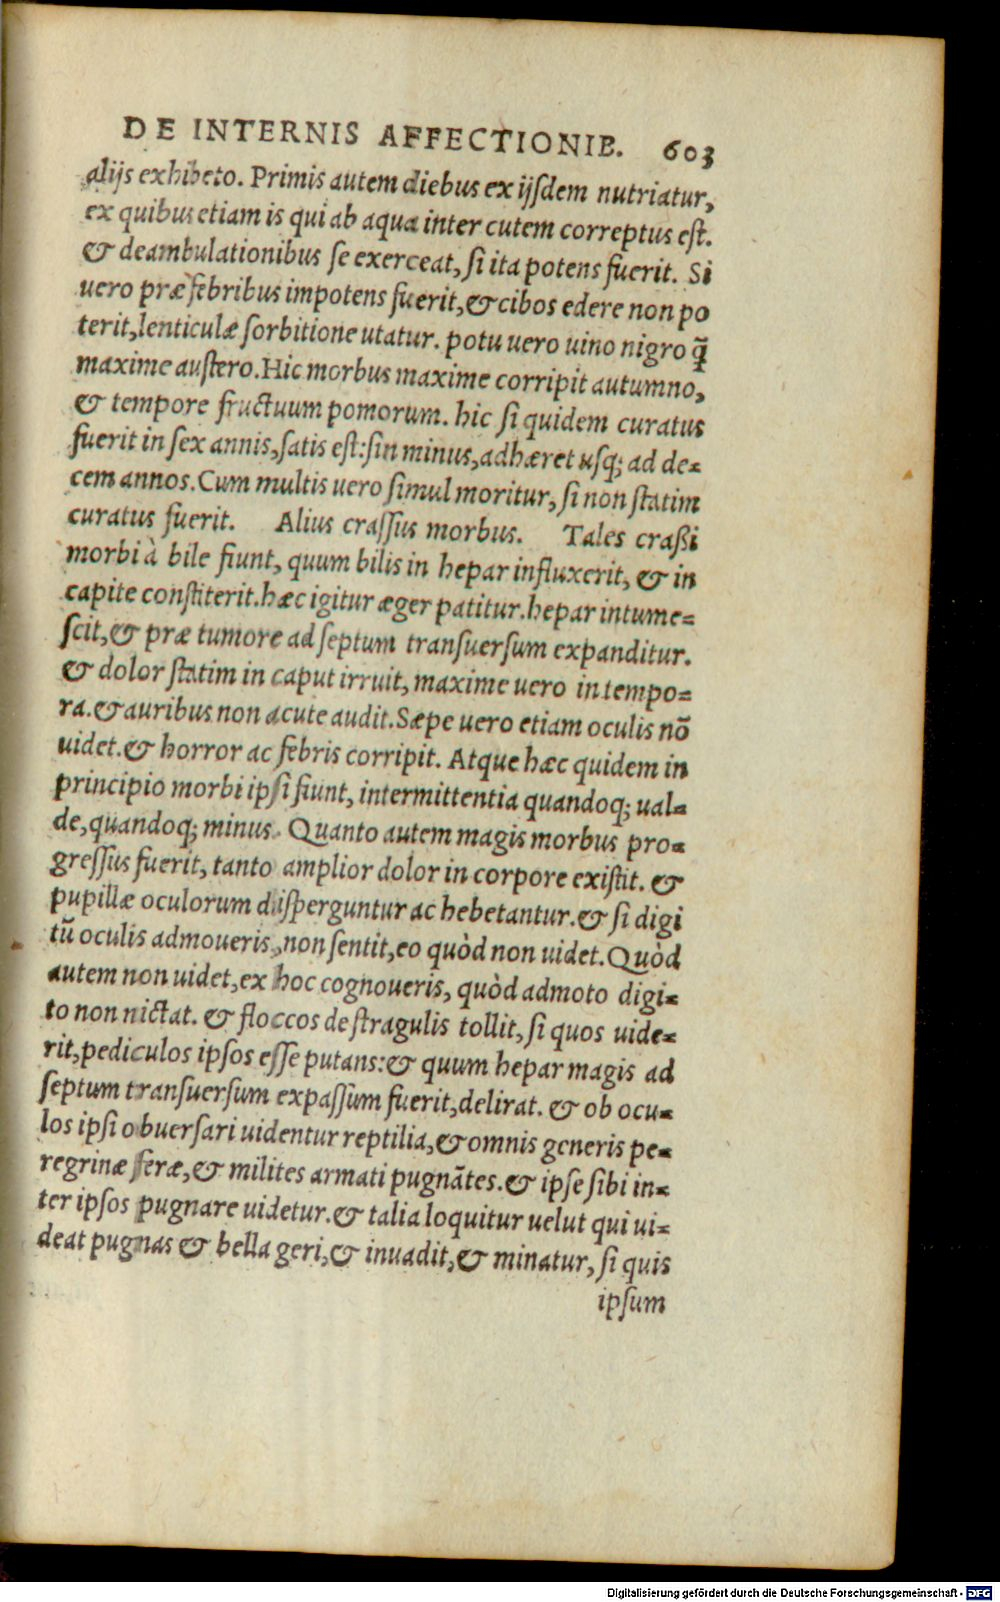 DE INTERNIS AFFECTIONIB. 603
alijs exhibeto. Primis autem diebus ex ijſdem nutriatur,
ex quibus etiam is qui ab aqua inter cutem correptus eſt.
& deambulationibus ſe exerceat, ſi ita potens fuerit. Si
uero præ febribus impotens fuerit, & cibos edere non po
terit, lenticulæ ſorbitione utatur. potu uero uino nigro q̃
maxime auſtero. Hic morbus maxime corripit autumno,
& tempore fructuum pomorum. hic ſi quidem curatus
fuerit in ſex annis, ſatis eſt: ſin minus, adhæret uſq; ad de-
cem annos. Cum multis uero ſimul moritur, ſi non ſtatim
curatus fuerit. Alius craſſus morbus. Tales craßi
morbi à bile fiunt, quum bilis in hepar influxerit, & in
capite conſtiterit. hæc igitur æger patitur. hepar intume-
ſcit, & præ tumore ad ſeptum tranſuerſum expanditur.
& dolor ſtatim in caput irruit, maxime uero in tempo-
ra. & auribus non acute audit. Sæpe uero etiam oculis nõ
uidet. & horror ac febris corripit. Atque hæc quidem in
principio morbi ipſi fiunt, intermittentia quandoq; ual-
de, quandoq; minus. Quanto autem magis morbus pro-
greſſus fuerit, tanto amplior dolor in corpore exiſtit. &
pupillæ oculorum diſperguntur ac hebetantur. & ſi digi
tũ oculis admoueris, non ſentit, eo quòd non uidet. Quòd
autem non uidet, ex hoc cognoueris, quòd admoto digi-
to non nictat. & floccos de ſtragulis tollit, ſi quos uide-
rit, pediculos ipſos eſſe putans: & quum hepar magis ad
ſeptum tranſuerſum expaſſum fuerit, delirat. & ob ocu-
los ipſi obuerſari uidentur reptilia, & omnis generis pe-
regrinæ feræ, & milites armati pugnãtes. & ipſe ſibi in-
ter ipſos pugnare uidetur. & talia loquitur uelut qui ui-
deat pugnas & bella geri, & inuadit, & minatur, ſi quis
ipſum
Digitalisierung gefördert durch die Deutsche Forschungsgemeinschaft - DFG